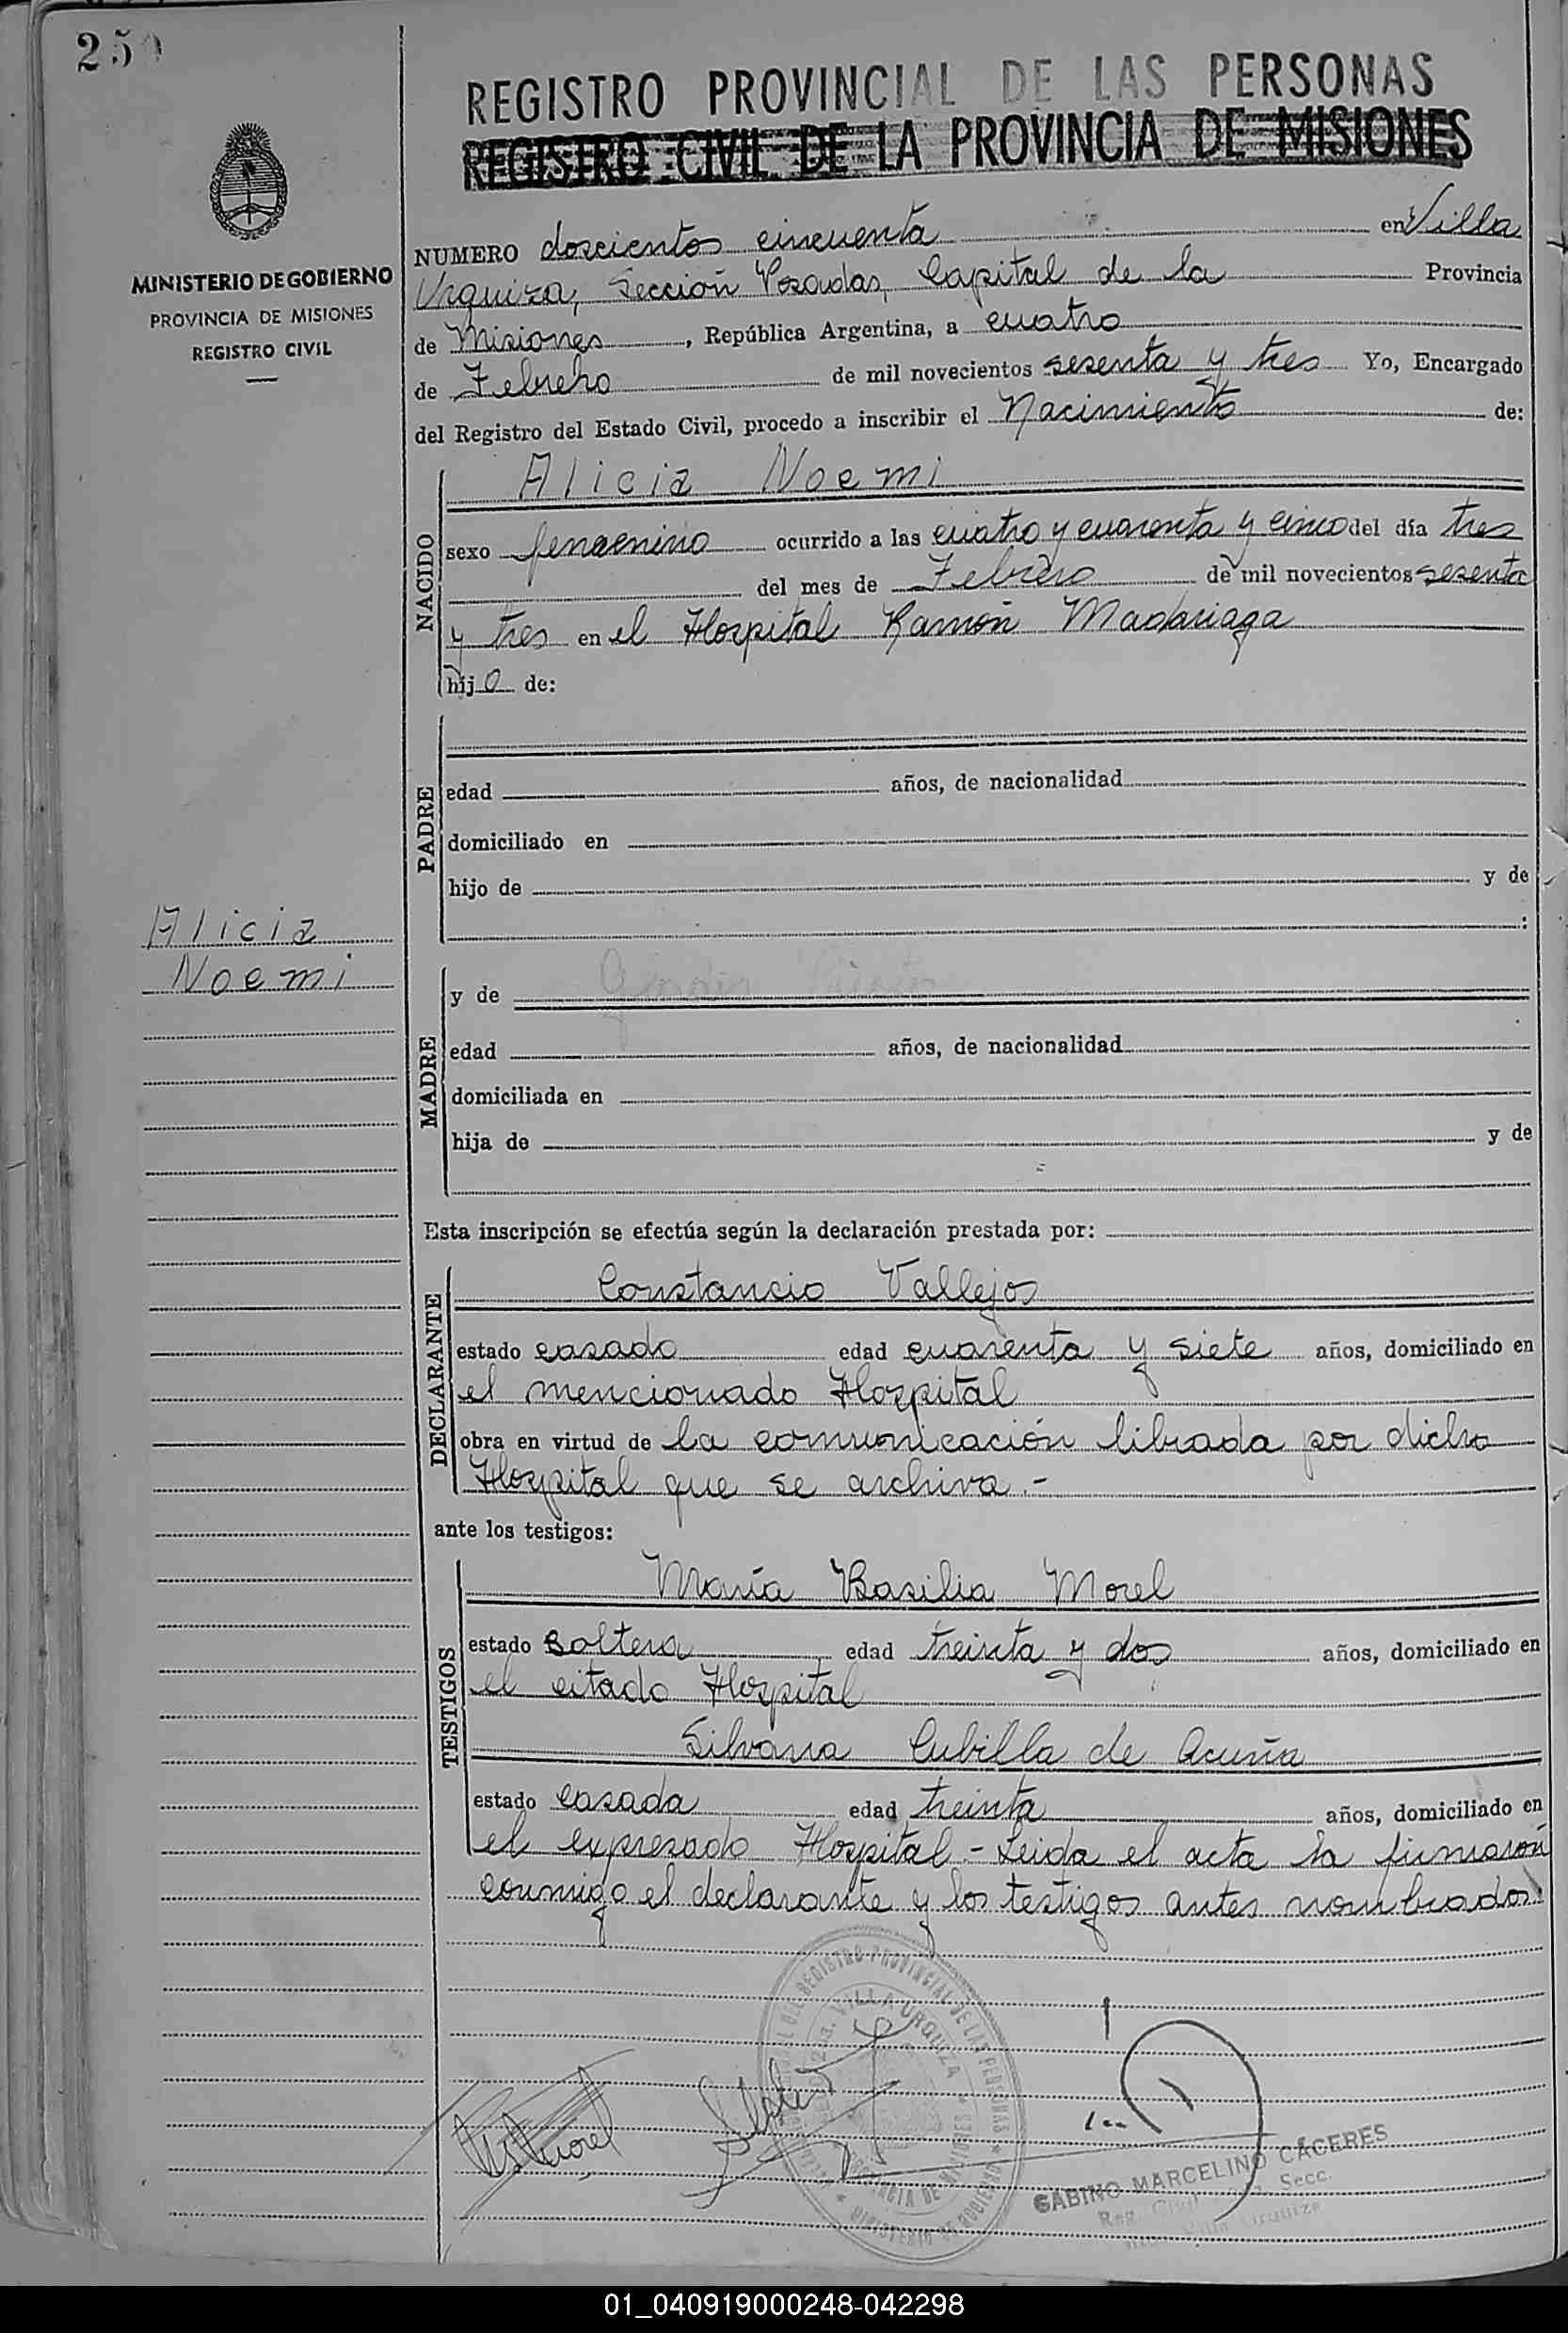 250
REGISTRO PROVINCIAL DE LAS PERSONAS
REGISTRO CIVIL DE LA PROVINCIA DE MISIONES
MINISTERIO DE GOBIERNO
PROVINCIA DE MISIONES
REGISTRO CIVIL
NUMERO doscientos cincuenta en Villa
Urquiza, Sección Posadas, Capital de la Provincia
de Misiones, República Argentina, a cuatro
de Febrero de mil novecientos sesenta y tres Yo, Encargado
del Registro del Estado Civil, procedo a inscribir el Nacimiento de:
NACIDO
Alicia Noemi
sexo femenino ocurrido a las cuatro y cuarenta y cinco del día tres
del mes de Febrero de mil novecientos sesenta
y tres en el Hospital Ramón Madariaga
hij de:
PADRE
edad años, de nacionalidad
domiciliado en
hijo de y de
:
Alicia
Noemi
MADRE
y de
edad años, de nacionalidad
domiciliada en
hija de y de
Esta inscripción se efectúa según la declaración prestada por:
DECLARANTE
Constancio Vallejos
estado casado edad cuarenta y siete años, domiciliado en
el mencionado Hospital
obra en virtud de la comunicación librada por dicho
Hospital que se archiva.-
ante los testigos:
TESTIGOS
María Basilia Morel
estado soltera edad treinta y dos años, domiciliado en
el citado Hospital
Silvana Cubilla de Acuña
estado casada edad treinta años, domiciliado en
el expresado Hospital - Leida el acta la firmaron
conmigo el declarante y los testigos antes nombrados.
REGISTRO PROVINCIAL DE LAS PERSONAS
VILLA URQUIZA
PROVINCIA DE MISIONES
MINISTERIO DE GOBIERNO
GABINO MARCELINO CACERES
Reg. Civil Secc.
Villa Urquiza
01_040919000248-042298